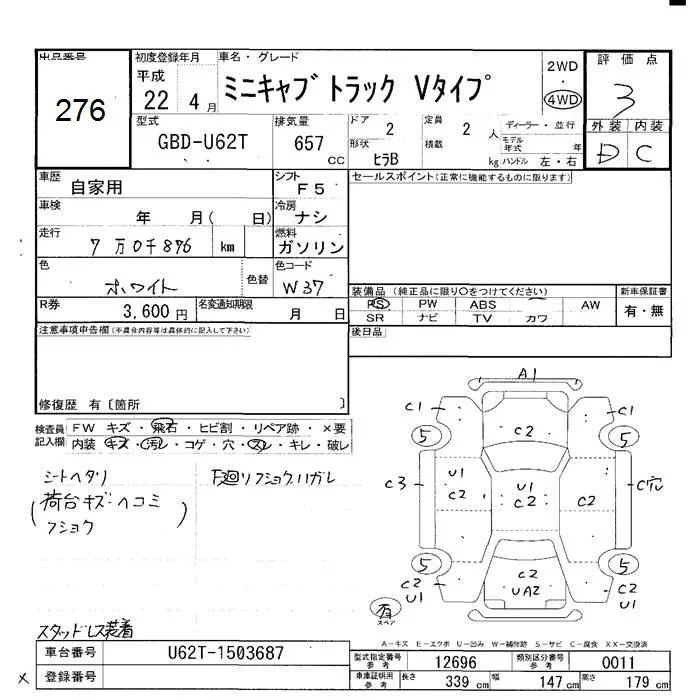 出品番号 276
初度登録年月 平成 22 4 月
車名・グレード ミニキャブ トラック Vタイプ
2WD ・ 4WD
評価点 3
外装 D 内装 C
型式 GBD-U62T
排気量 657 CC
ドア 2 定員 2 人
形状 ヒラB 積載 kg
ディーラー・並行
モデル年式 年
ハンドル 左・右
車歴 自家用
シフト F5
セールスポイント(正常に機能するものに限ります)
車検 年 月( 日)
冷房 ナシ
走行 7万0千876 km
燃料 ガソリン
色 ホワイト 色替
色コード W37
装備品(純正品に限り○をつけてください)
PS PW ABS AW
SR ナビ TV カワ
新車保証書 有・無
R券 3,600 円
名変通知期限 月 日
後日品
注意事項申告欄(不具合内容等は具体的に記入して下さい)
修復歴 有〔箇所 〕
検査員記入欄 FW キズ・飛石・ヒビ割・リペア跡・×要
内装 キズ・汚レ・コゲ・穴・スレ・キレ・破レ
シートヘタリ
下廻リフショクハガレ
(荷台キズ・ヘコミ
フショク)
スタッドレス装着
A1
C1 C1
5 C2 5
U1 C2
C3
U1 C2
C2
C穴
5 5
C2 U1
C2 UA2
C2 U1
有 スペア
A-キズ E-エクボ U-凹み W-補修跡 S-サビ C-腐食 XX-交換済
車台番号 U62T-1503687
型式指定番号 参考 12696
類別区分番号 参考 0011
× 登録番号
車庫証明用 参考 長さ 339 cm 幅 147 cm 高さ 179 cm